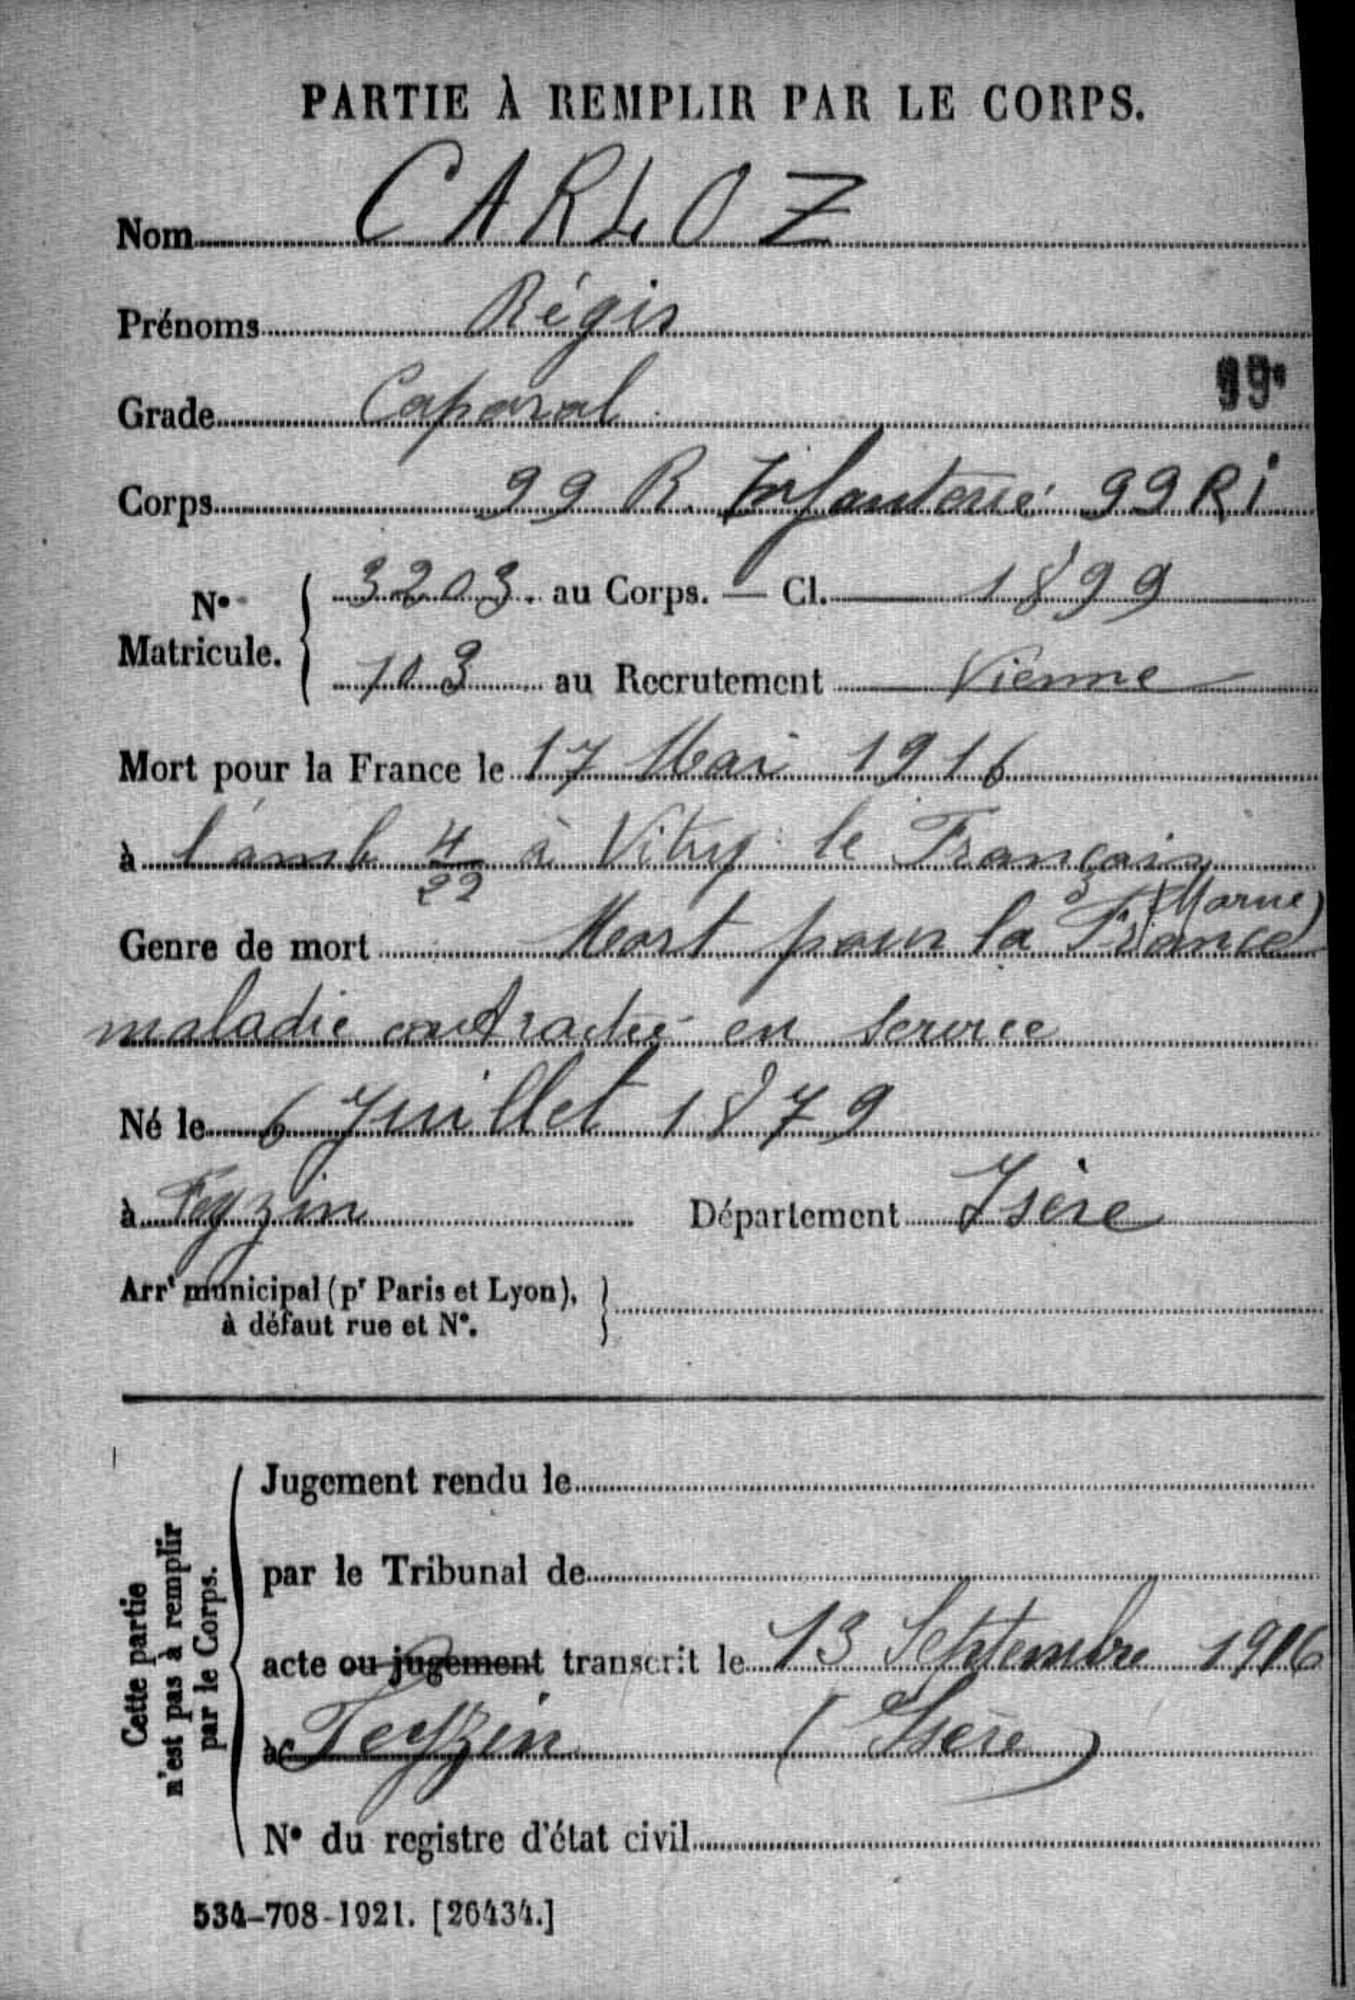 PARTIE À REMPLIR PAR LE CORPS.
Nom CARLOZ
Prénoms Régis
99e
Grade Caporal
Corps 99 R. Infanterie 99 RI
No Matricule. 3203 au Corps. — Cl. 1899
103 au Recrutement Vienne
Mort pour la France le 17 Mai 1916
à l'amb 4/22 à Vitry le Français
(Marne)
Genre de mort Mort pour la France
maladie contractée en service
Né le 6 Juillet 1879
à Feyzin Département Isère
Arrt municipal (pr Paris et Lyon),
à défaut rue et No.
Cette partie
n'est pas à remplir
par le Corps.
Jugement rendu le
par le Tribunal de
acte ou jugement transcrit le 13 Septembre 1916
à Feyzin (Isère)
No du registre d'état civil
534-708-1921. [26434.]